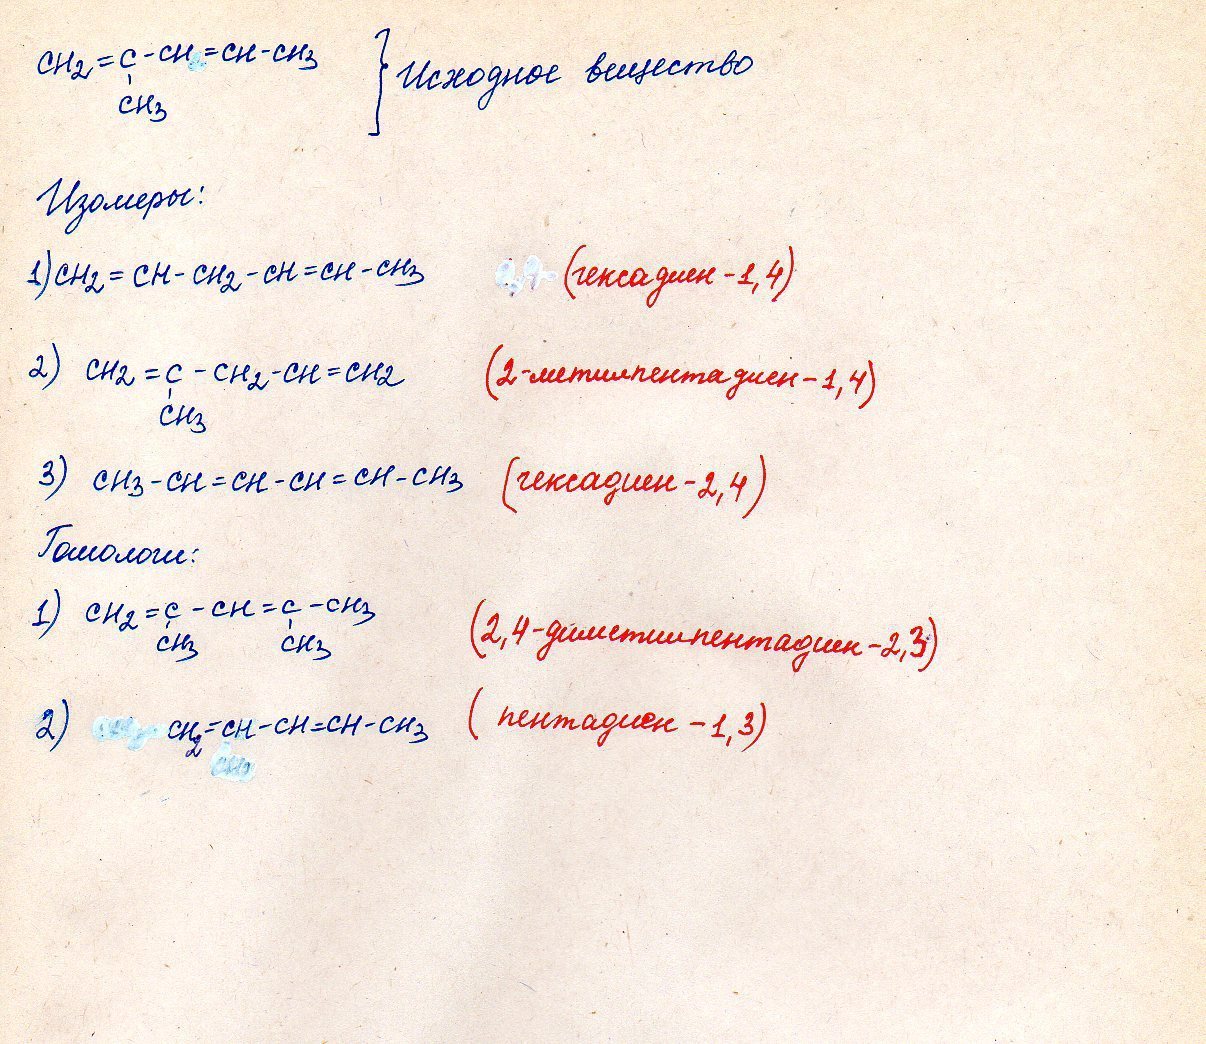 CH2=C-CH=CH-CH3 } Исходное вещество
CH3
Изомеры:
1) CH2=CH-CH2-CH=CH-CH3 (гексадиен-1,4)
2) CH2=C-CH2-CH=CH2 (2-метилпентадиен-1,4)
CH3
3) CH3-CH=CH-CH=CH-CH3 (гексадиен-2,4)
Гомологи:
1) CH2=C-CH=C-CH3 (2,4-диметилпентадиен-2,3)
CH3 CH3
2) CH2=CH-CH=CH-CH3 (пентадиен-1,3)